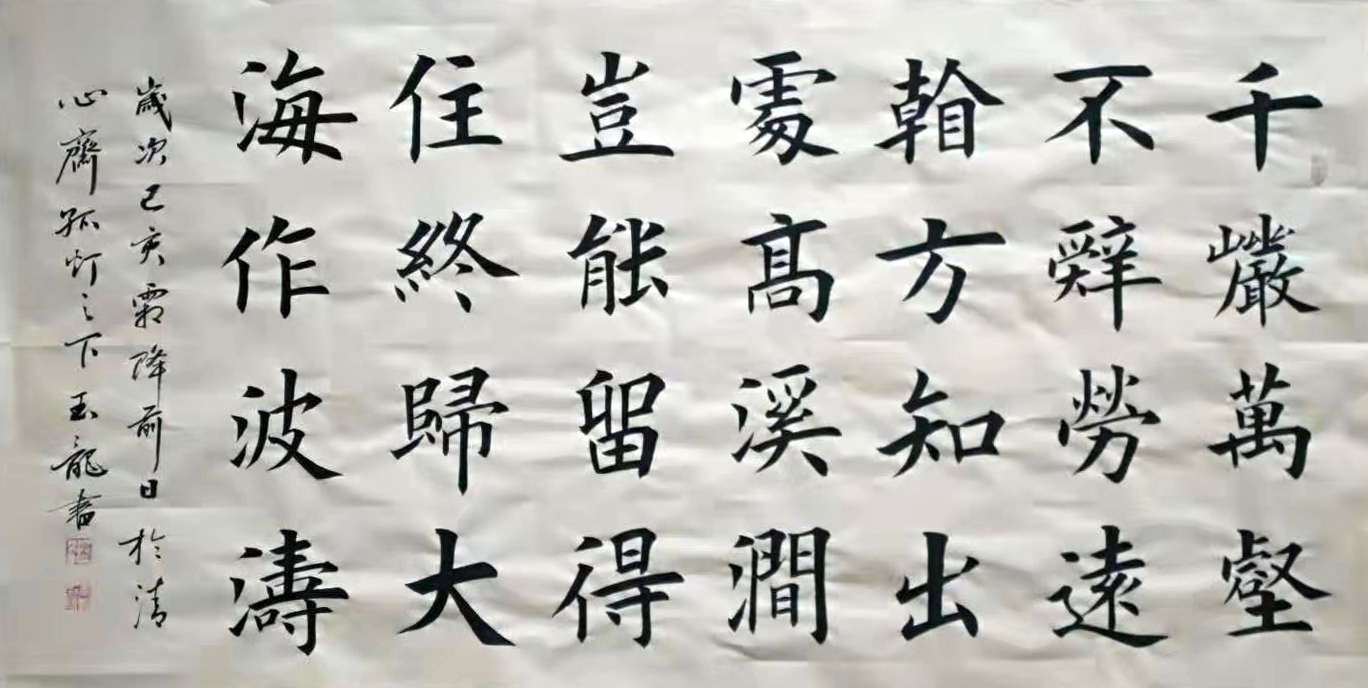 千巖萬壑
不辭勞遠
看方知出
處髙溪澗
豈能留得
住終歸大
海作波濤
歲次己亥霜降前日於清
心齋孤灯之下玉龍書